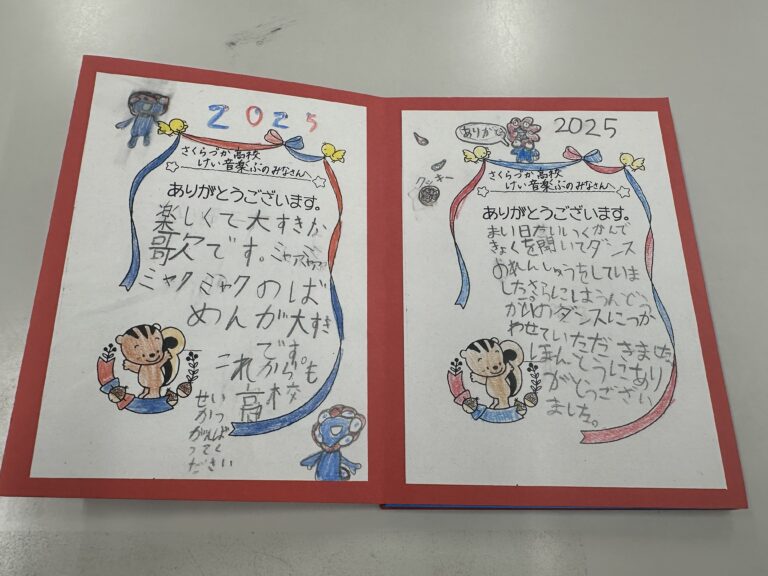 2025
さくらづか高校
けい音楽ぶのみなさんへ
ありがとうございます。
楽しくて大すきな
歌です。
ミャクミャクのば
めんが大すき
です。
これからも
高校
せいかつ
がんばって
ください
ありがとう
2025
クッキー
さくらづか高校
けい音楽ぶのみなさんへ
ありがとうございます。
まい日たいいくかんで
きょくを聞いてダンス
のれんしゅうをしていま
した。さらにはうんどう
かいのダンスにつか
わせていただきました。
ほんとうにあり
がとうござい
ました。